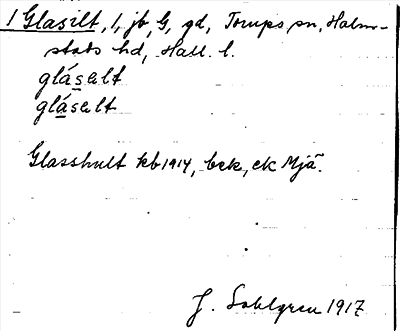 1 Glasilt, 1, jb, G, gd, Torups sn, Halm-
stads hd, Hall. l.
glásalt
glásalt
Glasshult kb 1914, bek, ek Mjä.
J. Sahlgren 1917